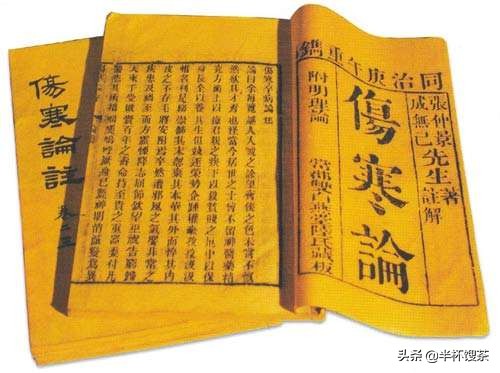 同治庚午重鐫
張仲景
成無己
先生
著
註解
傷寒論
附明理論
常郡雙白燕堂陸氏藏板
傷寒卒病論集
論曰余每覽越人入虢之診望齊侯之色未嘗不慨
然歎其才秀也怪當今居世之士曾不留神醫藥精
究方術上以療君親之疾下以救貧賤之厄中以保
身長全以養其生但競逐榮勢企踵權豪孜孜汲汲
惟名利是務崇飾其末忽棄其本華其外而悴其內
皮之不存毛將安附焉卒然遭邪風之氣嬰非常之
疾患及禍至而方震慄降志屈節欽望巫祝告窮歸
天束手受敗賫百年之壽命持至貴之重器委付凡
醫恣其所措咄嗟嗚呼厥身已斃神明消滅變為異
傷寒論註 卷二三
头条 @半杯馊茶